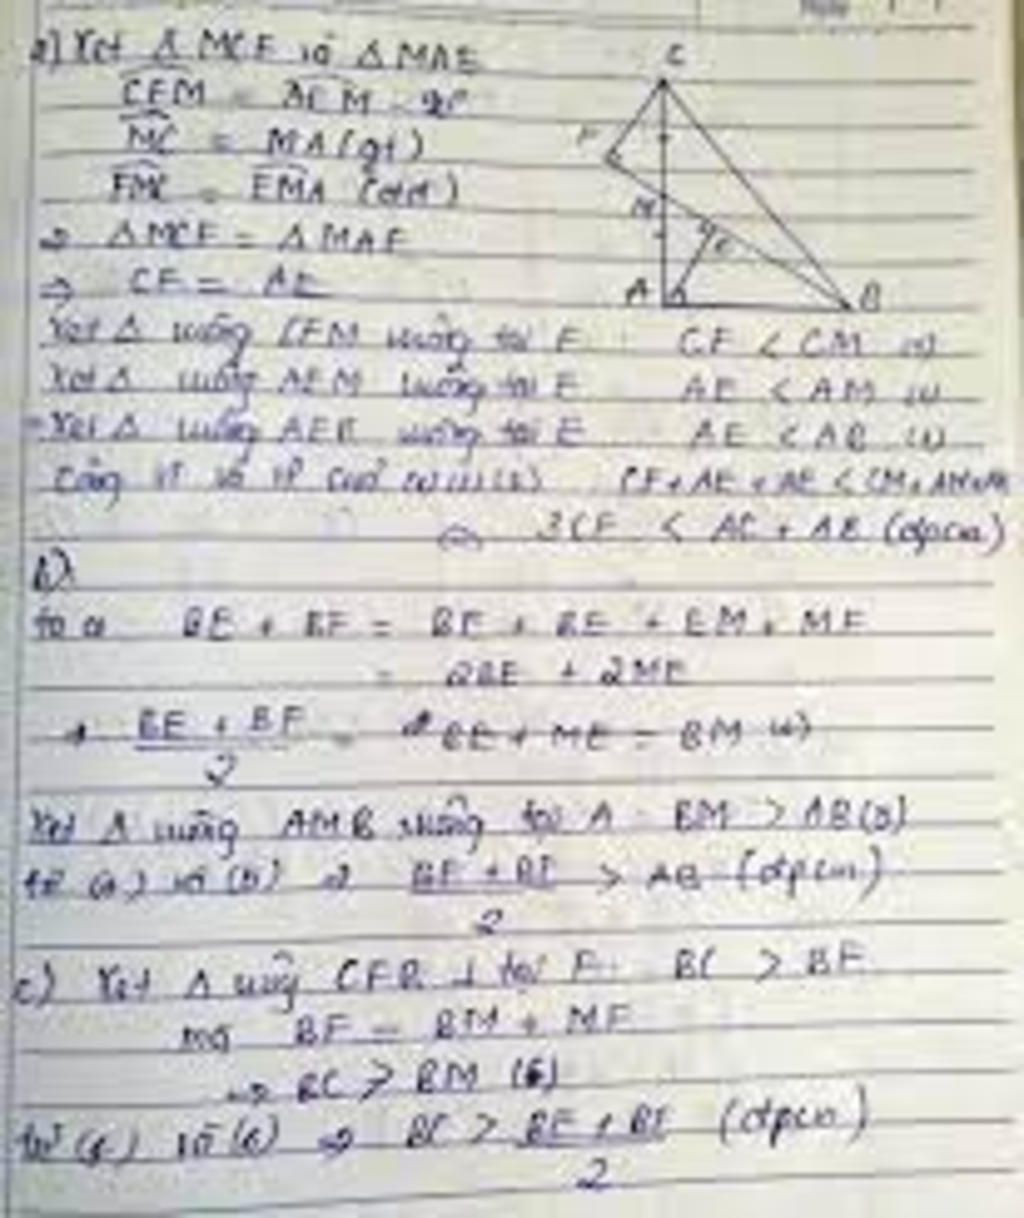 a) Xét Δ MCF và Δ MAE
CFM = AEM = 90°
MC = MA (gt)
FMC = EMA (đđ)
⇒ Δ MCF = Δ MAE
⇒ CF = AE
Xét Δ vuông CFM vuông tại F : CF < CM (1)
Xét Δ vuông AEM vuông tại E AE < AM (2)
- Xét Δ vuông AEB vuông tại E AE < AB (3)
Cộng vế và vế của (1)(2)(3) CF + AE + AE < CM + AM + AB
⇔ 3CF < AC + AB (đpcm)
b)
ta có BE + BF = BE + BE + EM + MF
= 2BE + 2ME
⇒ BE + BF / 2 = BE + ME = BM (4)
Xét Δ vuông AMB vuông tại A : BM > AB (5)
từ (4) và (5) ⇒ BE + BF / 2 > AB (đpcm)
c) Xét Δ vuông CFB ⊥ tại F : BC > BF
mà BF = BM + MF
⇒ BC > BM (6)
từ (4) và (6) ⇒ BC > BE + BF / 2 (đpcm)
C
F
M
E
A
B